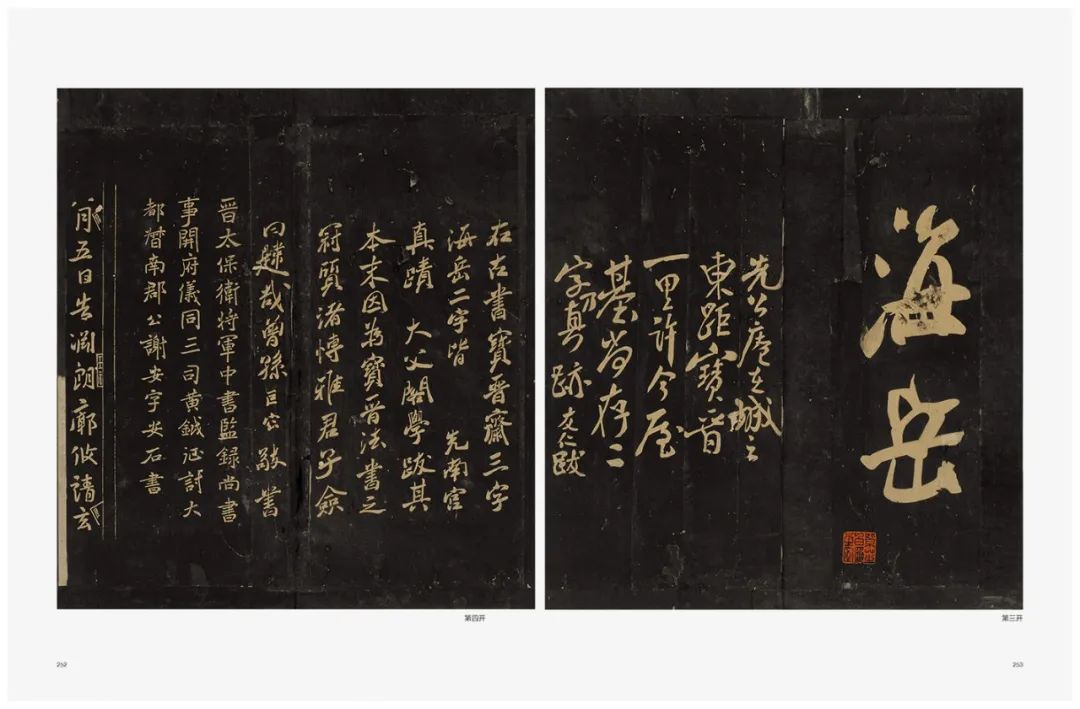 海岳
先公庵在城之
東距寶晉
一里許今屋
基尚存二
字乃真跡友仁跋
第三开
253
右古書寶晉齋三字
海岳二字皆 先南宮
真蹟 大父閣學跋其
本末因為寶晉法書之
冠質諸博雅君子僉
曰韙哉曾孫巨容敬書
晉太保衛將軍中書監録尚書
事開府儀同三司黄鉞征討大
都督南郡公謝安字安石書
月五日告淵朗廓攸靖玄
第四开
252